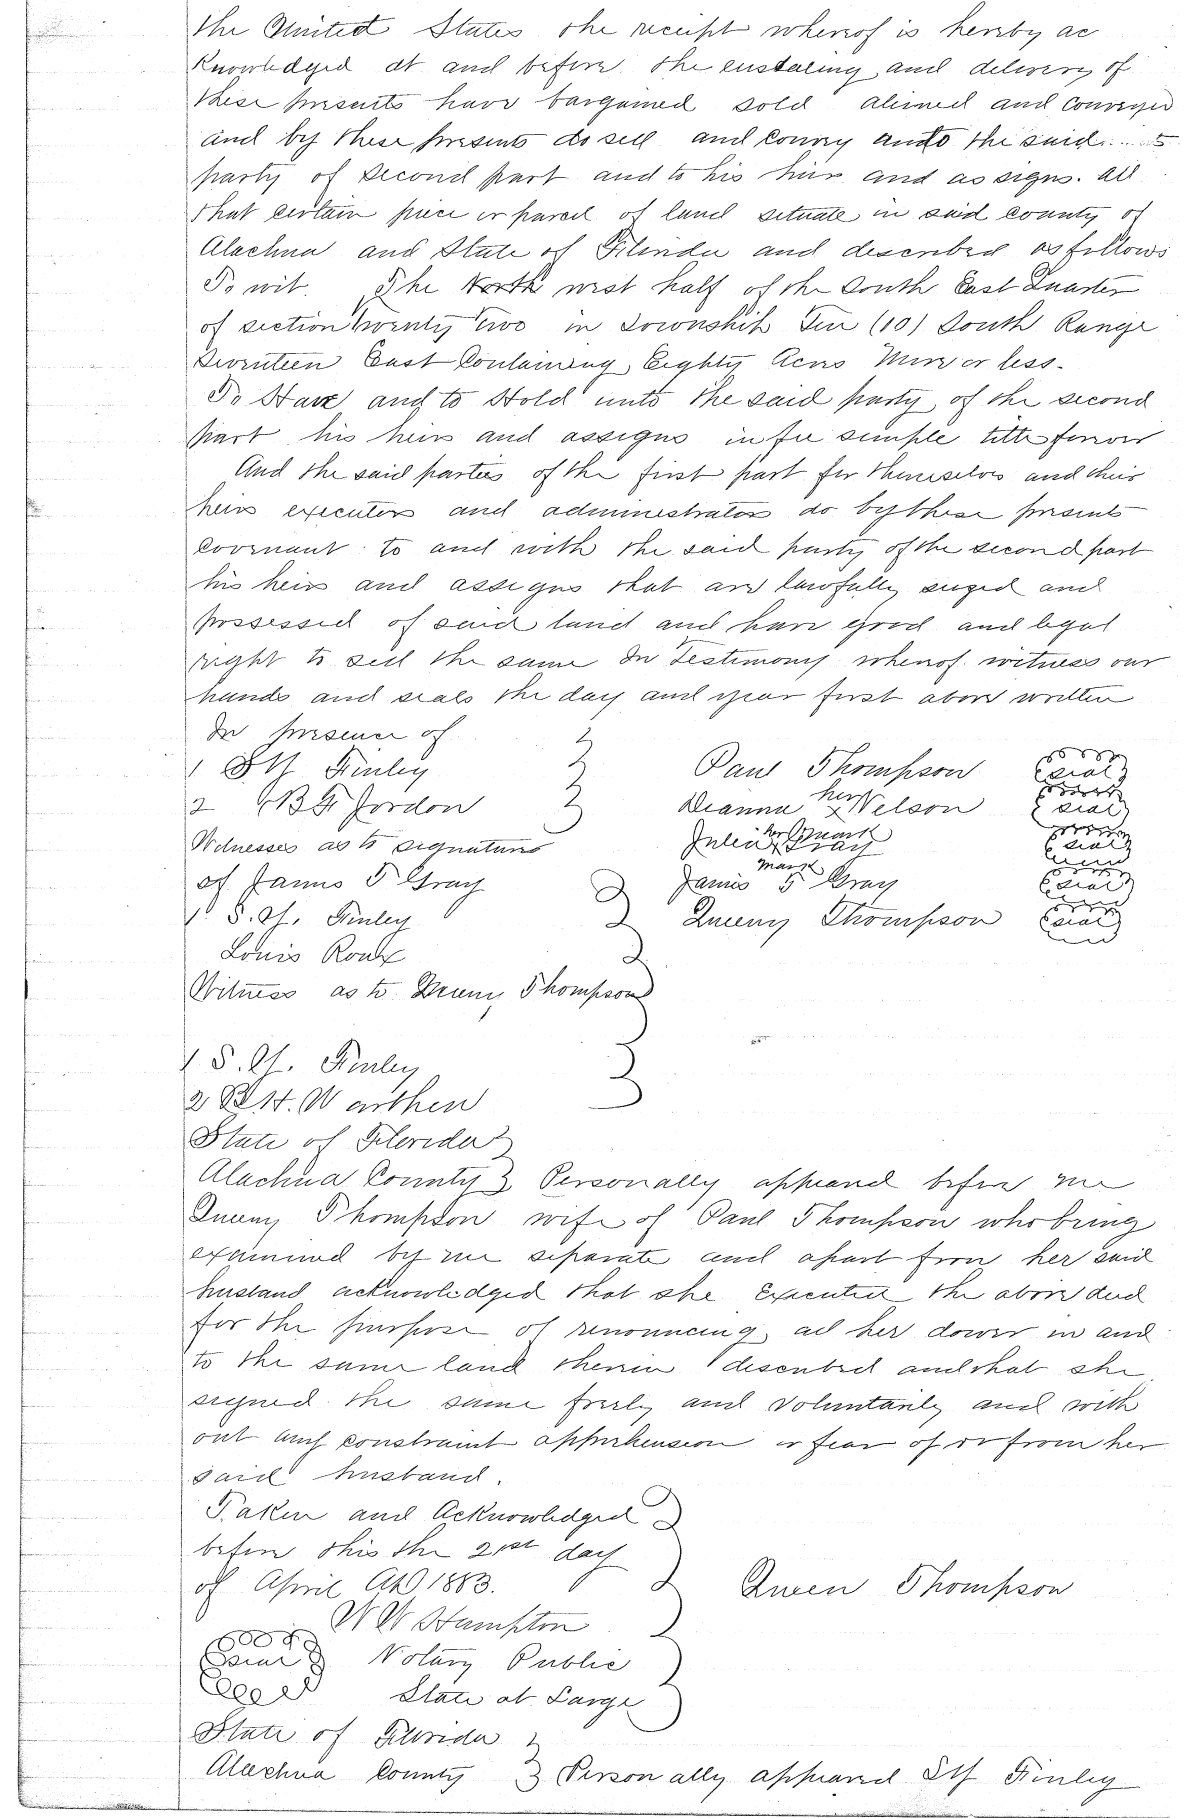 the United States the receipt whereof is hereby ac
knowledged at and before the ensealing and delivery of
these presents have bargained sold aliened and conveyed
and by these presents do sell and convey unto the said
party of second part and to his heirs and assigns. all
that certain piece or parcel of land situate in said county of
Alachua and State of Florida and described as follows
To wit. The North west half of the South East Quarter
of section twenty two in Township Ten (10) South Range
Seventeen East Containing Eighty Acres More or less.
To Have and to Hold unto the said party of the second
part his heirs and assigns in fee simple title forever
And the said parties of the first part for themselves and their
heirs executors and administrators do by these presents
covenant to and with the said party of the second part
his heirs and assigns that are lawfully seized and
possessed of said land and have good and legal
right to sell the same In Testimony whereof witness our
hands and seals the day and year first above written
In presence of
1 S H Finley Paul Thompson seal
2 B F Jordon Dianna her x Nelson seal
Witnesses as to signatures Julia her x mark Gray seal
of James S Gray James mark S Gray seal
1. S. H. Finley Queeny Thompson seal
Louis Roux
Witness as to Queeny Thompson
1 S. H. Finley
2 B H. Warthen
State of Florida
Alachua County Personally appeared before me
Queeny Thompson wife of Paul Thompson who being
examined by me separate and apart from her said
husband acknowledged that she Executed the above deed
for the purpose of renouncing all her dower in and
to the same land therein described and that she
signed the same freely and Voluntarily and with
out any constraint apprehension or fear of or from her
said husband.
Taken and Acknowledged
before this the 21st day
of April AD 1883. Queen Thompson
W W Hampton
seal Notary Public
State at Large
State of Florida
Alachua County Personally appeared S H Finley